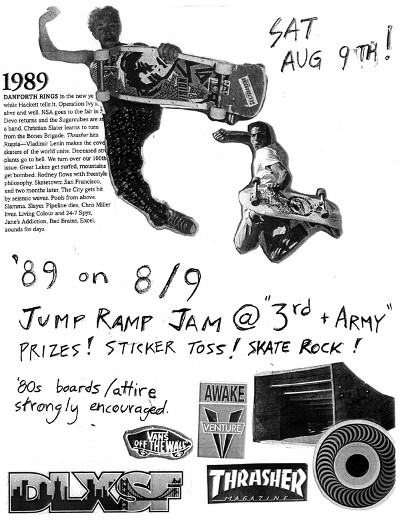 SAT
AUG 9TH!
1989
DANFORTH RINGS in the new ye
while Hackett tells it, Operation Ivy a
alive and well. NSA goes to the fair in
Devo returns and the Sugarcubes are st
a band. Christian Slater learns to turn
from the Bones Brigade. Thrasher hits
Russia—Vladimir Lenin makes the cove
skaters of the world unite. Deceased
plants go to hell. We turn over our 100th
issue. Great Lakes get surfed, mountains
get bombed. Rodney flows with freestyle
philosophy. Skatetown: San Francisco,
and two months later, The City gets hit
by seismic waves. Pools from above.
Slamma. Slayer. Pipeline dies, Chris Miller
lives. Living Colour and 24-7 Spyz,
Jane's Addiction, Bad Brains, Excel,
sounds for days.
THRASHER
'89 on 8/9
JUMP RAMP JAM @ "3rd + ARMY"
PRIZES! STICKER TOSS! SKATE ROCK!
'80s boards/attire
strongly encouraged.
AWAKE
VENTURE
VANS
"OFF THE WALL"
DLXSF
THRASHER
MAGAZINE